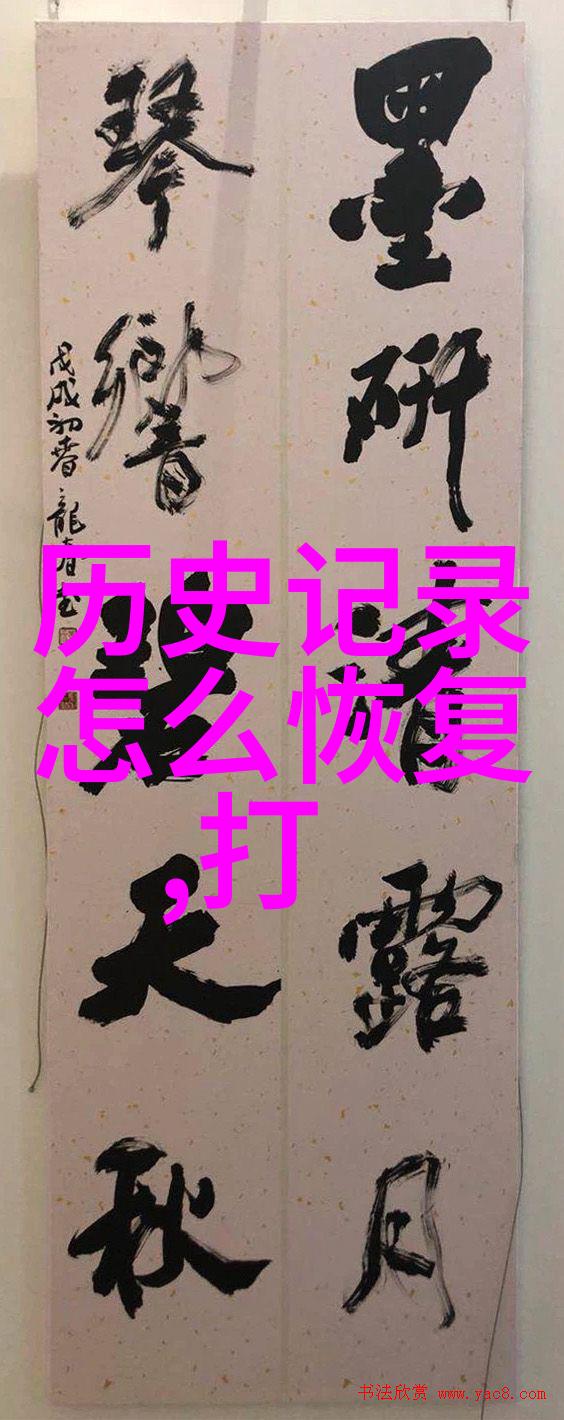 墨研清露月
琴響碧天秋
戊戌初春 龍
历史记录
怎么恢复
,打
书法欣赏 www.yac8.com